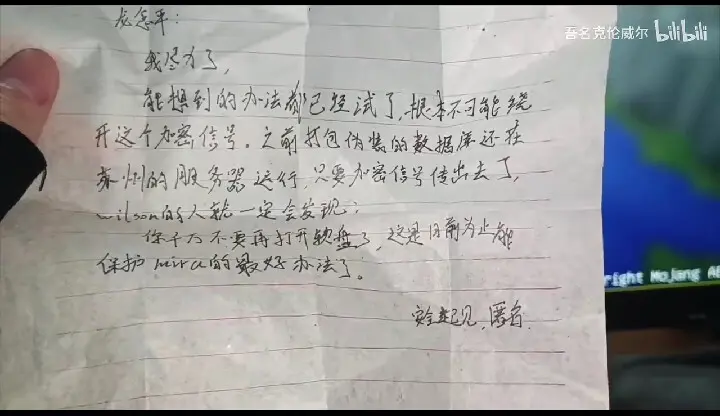 吾名克伦威尔 bilibili
龙怎平：
我尽力了，
能想到的办法都已经试了，根本不可能绕
开这个加密信号。之前打包伪装的数据库还在
苏州的服务器运行，只要加密信号传出去了，
wilson的人就一定会发现；
你千万不要再打开软盘了，这是目前为止能
保护mira的最好办法了。
安全起见，匿名.
right Mojang AB